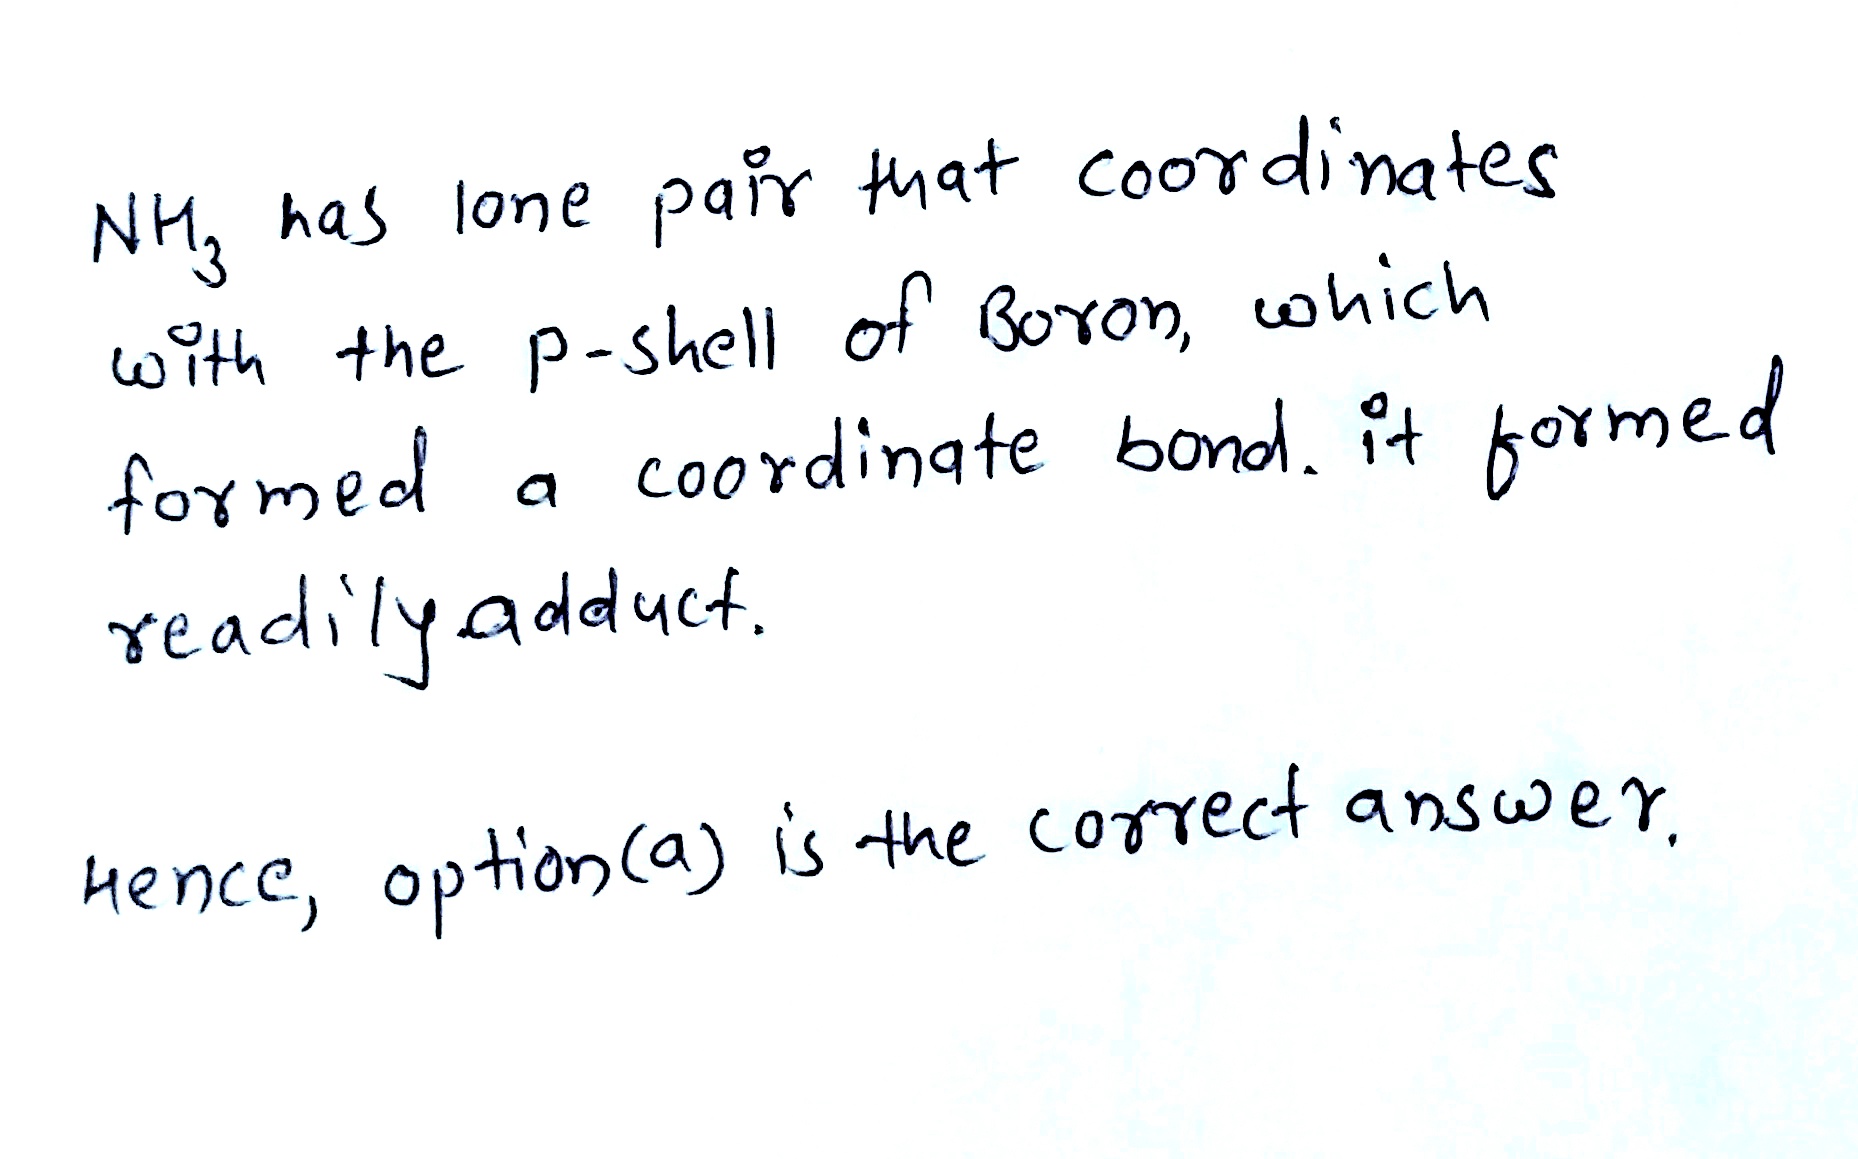 NH₃ has lone pair that coordinates
with the p-shell of Boron, which
formed a coordinate bond. it formed
readily adduct.
Hence, option (a) is the correct answer.